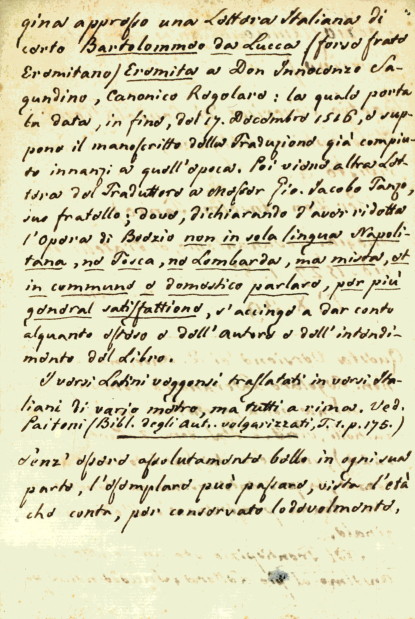 gina appresso una Lettera Italiana di
certo Bartolommeo da Lucca (forse frate
Eremitano) Eremita a Don Innocenzo Sa-
gundino, Canonico Regolare: la quale porta
la data, in fine, del 17. Decembre 1516, e sup-
pone il manoscritto della Traduzione già compiu-
to innanzi a quell'epoca. Poi viene altra Let-
tera del Traduttore a Messer Gio. Jacobo Tanzo,
suo fratello; dove, dichiarando d'aver ridotta
l'Opera di Boezio non in sola lingua Napoli-
tana, nè Tosca, nè Lombarda, ma mista, et
in commune e domestico parlare, per più
general satisfattione, s'accinge a dar conto
alquanto esteso e dell'Autore e dell'intendi-
mento del Libro.
I versi Latini veggonsi traslatati in versi Ita-
liani di vario metro, ma tutti a rima. Ved.
Paitoni (Bibl. degli Aut. volgarizzati, T. 1. p. 175.)
Senz'essere assolutamente bello in ogni sua
parte, l'esemplare può passare, vista l'età
che conta, per conservato lodevolmente.